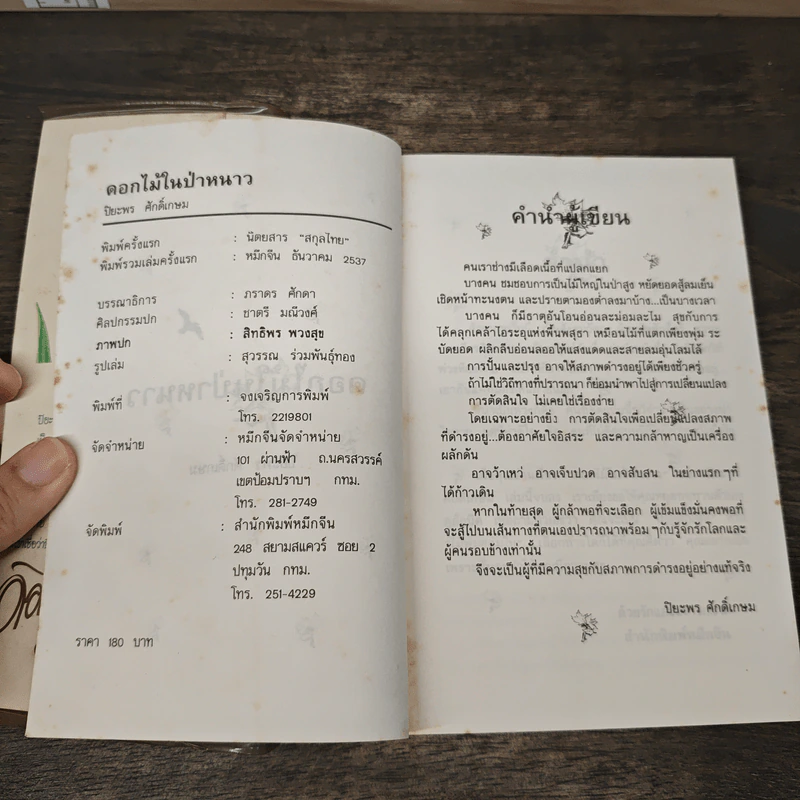 ดอกไม้ในป่าหนาว
ปิยะพร ศักดิ์เกษม
พิมพ์ครั้งแรก : นิตยสาร "สกุลไทย"
พิมพ์รวมเล่มครั้งแรก : หมึกจีน ธันวาคม 2537
บรรณาธิการ : ภราดร ศักดา
ศิลปกรรมปก : ชาตรี มณีวงศ์
ภาพปก : สิทธิพร พวงสุข
รูปเล่ม : สุวรรณ ร่วมพันธุ์ทอง
พิมพ์ที่ : จงเจริญการพิมพ์
โทร. 2219801
จัดจำหน่าย : หมึกจีนจัดจำหน่าย
101 ผ่านฟ้า ถ.นครสวรรค์
เขตป้อมปราบฯ กทม.
โทร. 281-2749
จัดพิมพ์ : สำนักพิมพ์หมึกจีน
248 สยามสแควร์ ซอย 2
ปทุมวัน กทม.
โทร. 251-4229
ราคา 180 บาท
คำนำผู้เขียน
คนเราช่างมีเลือดเนื้อที่แปลกแยก
บางคน ชมชอบการเป็นไม้ใหญ่ในป่าสูง หยัดยอดสู้ลมเย็น
เชิดหน้าทะนงตน และปรายตามองต่ำลงมาบ้าง...เป็นบางเวลา
บางคน ก็มีธาตุอันโอนอ่อนละม่อมละไม สุขกับการ
ได้คลุกเคล้าไอระอุแห่งพื้นพสุธา เหมือนไม้ที่แตกเพียงพุ่ม ระ
บัดยอด ผลิกลีบอ่อนลออให้แสงแดดและสายลมอุ่นโลมไล้
การปั้นและปรุง อาจให้สภาพดำรงอยู่ได้เพียงชั่วครู่
ถ้าไม่ใช่วิถีทางที่ปรารถนา ก็ย่อมนำพาไปสู่การเปลี่ยนแปลง
การตัดสินใจ ไม่เคยใช่เรื่องง่าย
โดยเฉพาะอย่างยิ่ง การตัดสินใจเพื่อเปลี่ยนแปลงสภาพ
ที่ดำรงอยู่...ต้องอาศัยใจอิสระ และความกล้าหาญเป็นเครื่อง
ผลักดัน
อาจว้าเหว่ อาจเจ็บปวด อาจสับสน ในย่างแรกๆที่
ได้ก้าวเดิน
หากในท้ายสุด ผู้กล้าพอที่จะเลือก ผู้เข้มแข็งมั่นคงพอที่
จะสู้ไปบนเส้นทางที่ตนเองปรารถนาพร้อมๆกับรู้จักรักโลกและ
ผู้คนรอบข้างเท่านั้น
จึงจะเป็นผู้ที่มีความสุขกับสภาพการดำรงอยู่อย่างแท้จริง
ปิยะพร ศักดิ์เกษม